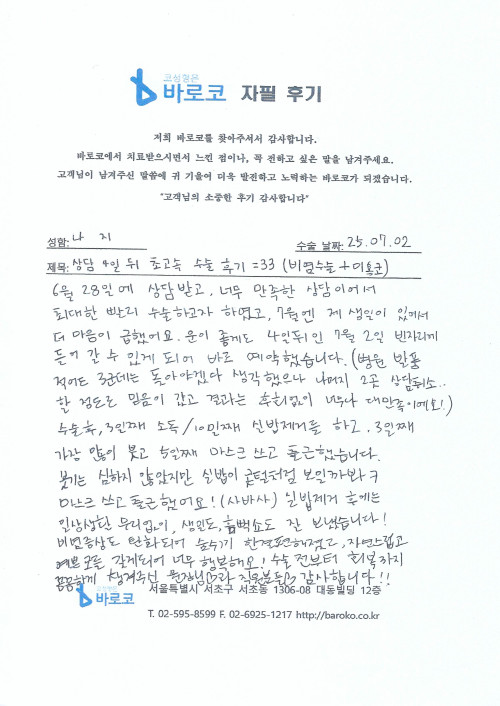 코성형은
바로코 자필 후기
저희 바로코를 찾아주셔서 감사합니다.
바로코에서 치료받으시면서 느낀 점이나, 꼭 전하고 싶은 말을 남겨주세요.
고객님이 남겨주신 말씀에 귀 기울여 더욱 발전하고 노력하는 바로코가 되겠습니다.
"고객님의 소중한 후기 감사합니다"
성함: 나 지 수술 날짜: 25.07.02
제목: 상담 4일 뒤 초고속 수술 후기 =33 (비염수술 + 미용코)
6월 28일에 상담받고, 너무 만족한 상담이어서
최대한 빨리 수술하고자 하였고, 7월엔 제 생일이 있어서
더 마음이 급했어요. 운이 좋게도 4일뒤인 7월 2일 빈자리에
들어갈 수 있게 되어 바로 예약했습니다. (병원 발품
적어도 3군데는 돌아야겠다 생각했으나 나머지 2곳 상담취소..
할 정도로 믿음이 갔고 결과는 후회없이 너무나 대만족이에요!)
수술후, 3일째 소독 / 10일째 실밥제거를 하고. 3일째
가장 많이 붓고 5일째 마스크 쓰고 출근했습니다.
붓기는 심하지 않았지만 실밥이 콧털처럼 보일까봐ㅋ
마스크 쓰고 출근했어요! (사바사) 실밥제거 후에는
일상생활 무리없이, 생일도, 흠뻑쇼도 잘 보냈습니다!
비염증상도 완화되어 숨쉬기 한결편해졌고, 자연스럽고
예쁜 코를 갖게되어 너무 행복해요! 수술 전부터 회복까지
꼼꼼하게 챙겨주신 원장님♡과 직원분들♡ 감사합니다!!
코성형은
바로코 서울특별시 서초구 서초동 1306-08 대동빌딩 12층
T. 02-595-8599 F. 02-6925-1217 http://baroko.co.kr